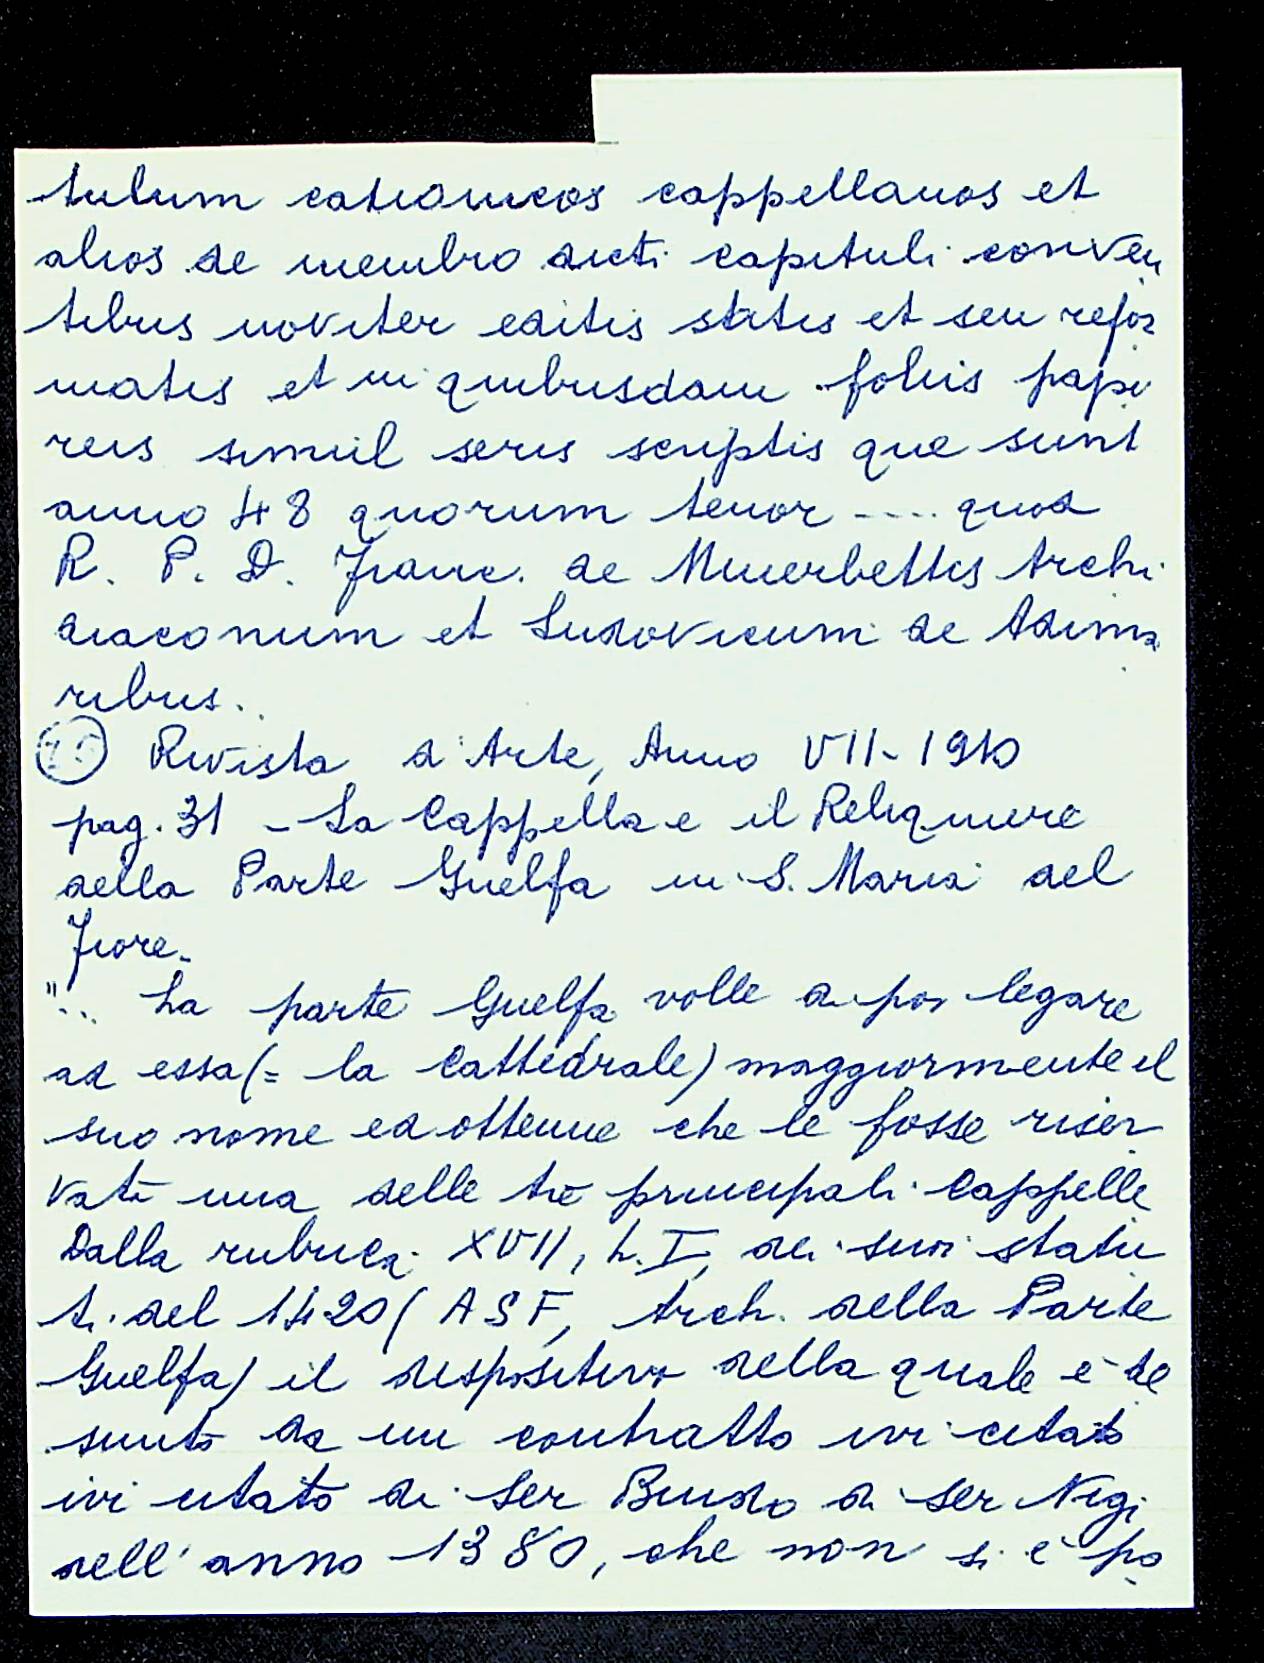 tulum catronicos cappellanos et
alios de membro dicti capituli conven
tibus noviter editis statis et seu refor
matis et in quibusdam foliis papi
reis simul seris scriptis que sunt
anno 48 quorum tenor .... quod
R. P. D. Franc. de Minerbettis Archi
diaconum et Ludovicum de Adima
ribus.
Rivista d'Arte, Anno VII - 1910
pag. 31 - La Cappella e il Reliquiere
della Parte Guelfa in S. Maria del
Fiore.
"... La parte Guelfa volle di poi legare
ad essa (= la Cattedrale) maggiormente il
suo nome ed ottenne che le fosse riser
vata una delle tre principali Cappelle
Dalla rubrica XVII, L. I, dei suoi statu
ti del 1420 (ASF, Arch. della Parte
Guelfa) il dispositivo della quale è de
sunto da un contratto ivi citato
ivi citato di Ser Bindo di ser Nigi
dell'anno 1380, che non si è po